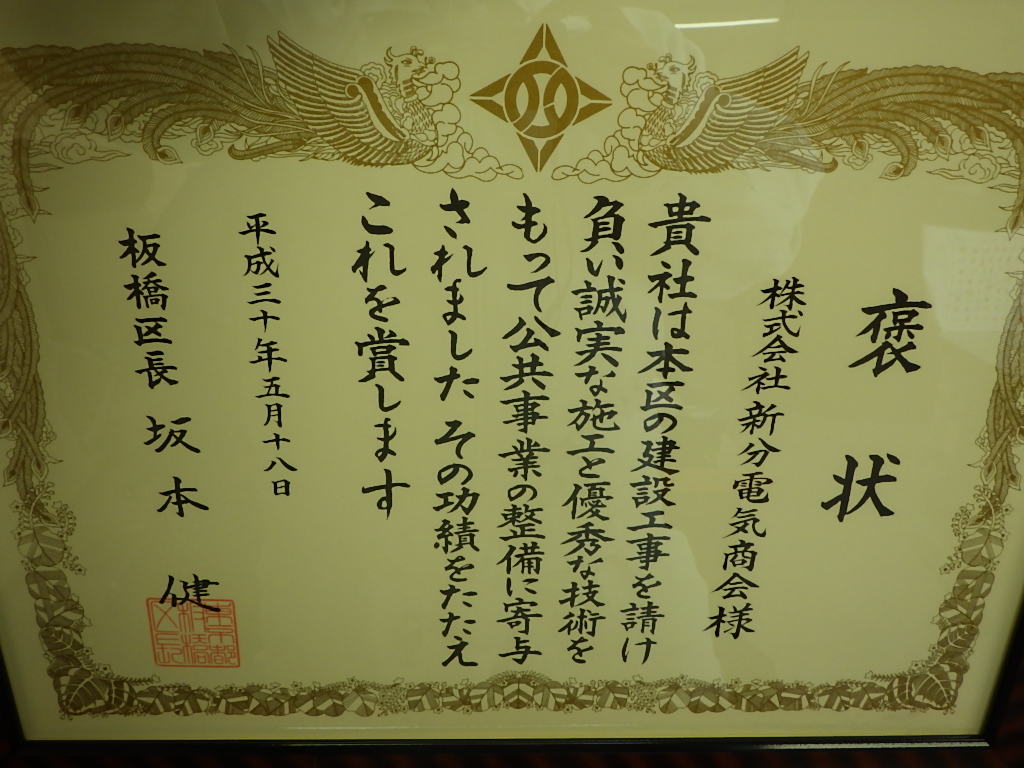 褒状
株式会社新分電気商会様
貴社は本区の建設工事を請け
負い誠実な施工と優秀な技術を
もって公共事業の整備に寄与
されました その功績をたたえ
これを賞します
平成三十年五月十八日
板橋区長 坂本 健